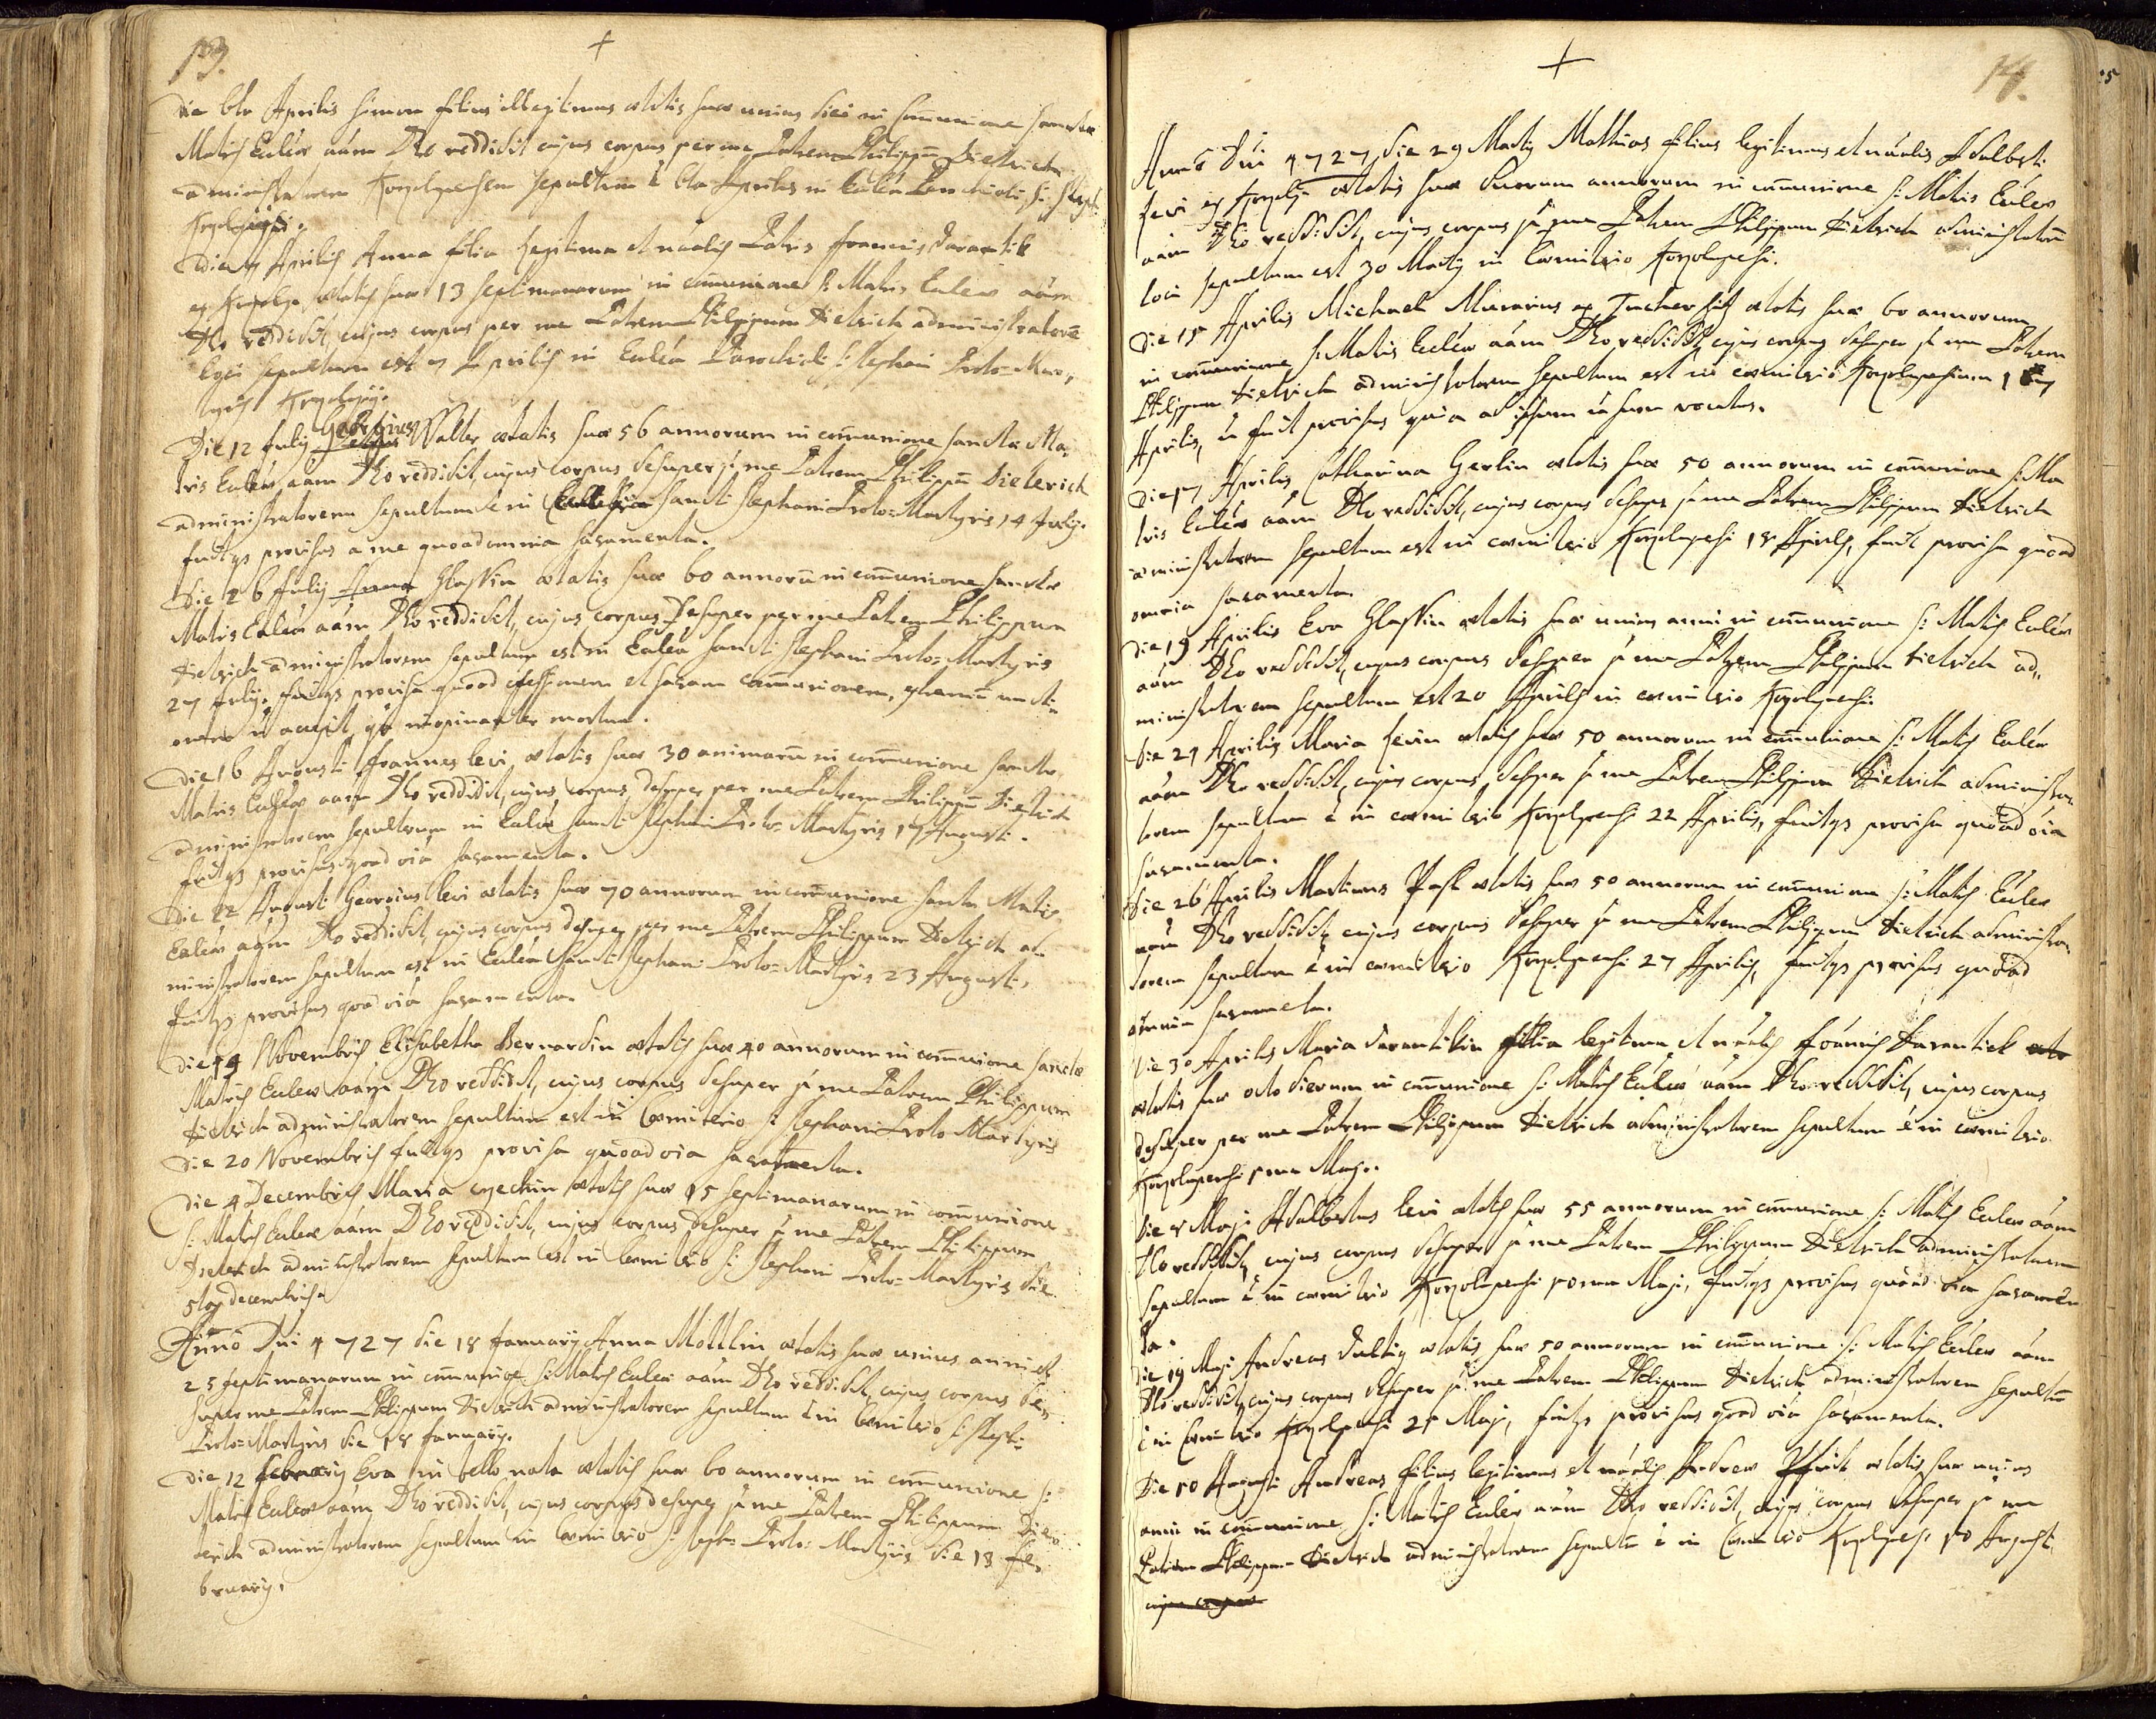 13.
+
Die 6ta Aprilis Simon filius illegitimus ætatis suæ unius diei in communione sanctæ
Matris Eccl&iae aãm Deo reddidit cujus corpus per me Patrem Philippũ Dietrich
administratorem sepultum ẽ 6ta Aprilis in Eccl&ia Parochiali S: Steph:

Die 7 Aprilis Anna filia legitima et nãalis Patris Joannis Tarantik
ex ætatis suæ 13 septimanarum in cõmunione S: Matris Ecclæ aãm
Dẽo reddidit, cujus corpus per me Patrem Philippum Dietrich administratorẽ
loci sepultum est 7 Aprilis in Ecclã Parochiali S: Stephani Proto=Mar,
tyris
Die 12 July Georgius Walter ætatis suæ 56 annorum in cõmunione sanctæ Ma,
tris Ecclæ, aãm Dẽo reddidit, cujus corpus desuper p̃ me Patrem Philippũ Dieterich
administratorem sepultum ẽ in sancti Stephani Proto=Martyris 14 July.
fuitq3 provisus a me quoad omnia sacramenta.
Die 26 July Anna Glaßin ætatis suæ 60 annorũ in cõmunione sanctæ
Matris Ecclæ aãm Dẽo reddidit, cujus corpus Desuper per me Patrem Philippum
Dietrich administratorem sepultum est in Ecclã sancti Stephani Proto=Martyris
27 July, fuitq3 provisa quoad cfessionem et sacram communionem, extremũ uncti=
onem ñ accepit, qia inopinanter mortua.
Die 16 Augusti Joannes levi, ætatis suæ 30 animarũ in cõmunione sanctæ
Matris Ecclæ aãm Dẽo reddidit, cujus corpus desuper per me Patrem Philippũ Dietrich
administratorem sepultum in Ecclã sancti Stephani Proto=Martyris 17 Augusti.
fuitq3 provisus qoad oĩa sacramenta.
Die 22 Augusti Georgius levi ætatis suæ 70 annorum in cõmunione sanctæ Matris
Ecclæ aãm Dẽo reddidit, cujus corpus desuper per me Patrem Philippum Dietrich ad
ministratorem sepultum est in Ecclã sancti Stephani Proto=Martyris 23 Augusti,
fuitq3 provisus qoad oĩa sacramenta.
Die 19 Novembris Elisabetha Bernardin ætatis suæ 40 annorum in cõmunione sanctæ
Matris Ecclæ aãm Dẽo reddidit, cujus corpus desuper p̃ me Patrem Philippum
Dietrich administratorem sepultum est in Cœmiterio S: Stephani Proto Martyris
Die 20 Novembris fuitq3 provisa quoad oĩa sacramenta.
Die 4 Decembris Maria czechin ætatis suæ 15 septimanarum in cõmunione
S: Matris Ecclæ aãm Dẽo reddidit, cujus corpus desuper p̃ me Patrem Philippum
Dietrich administratorem sepultum est in Cœmiterio S: Stephani Proto=Martyris die
5ta decembris.
Anno Dñi 1727 die 18 January Anna Mottlin ætatis suæ unius anni et
25 septimanarum in cõmunione S: Matris Ecclæ aãm Dẽo reddidit, cujus corpus de,
super me Patrem Philippum Dietrich administratorem sepultum ẽ in Cœmiterio S: Steph:
Proto=Martyris die 18 January.
Die 12 february Eva in bello nata ætatis suæ 60 annorum in cõmunione S:
Matris Ecclæ aãm Dẽo reddidit, cujus corpus desuper p̃ me Patrem Philippum Diet,
rich administratorem sepultum in Cœmiterio S: Steph: Proto=Martyris die 13 fe,
bruary.
+
14.
Anno Dñi 1727 die 29 Marty Mathias filius legitimus et nãalis Adalberti
levi ex ætatis suæ duorum annorum in cõmunione S: Matris Ecclæ
aãm Dẽo reddidit, cujus corpus p̃ me Patrem Philippum Dietrich administratorẽ
loci sepultum est 30 Marty in Cœmiterio
Die 15 Aprilis Michael Murarius ex ætatis suæ 60 annorum
in cõmunione S: Matris Ecclæ aãm Dẽo reddidit, cujus corpus desuper p̃ me Patrem
Philippum Dietrich administratorem sepultum est in cœmiterio
Aprilis, ñ fuit provisus quia ad ipsum ñ sum vocatus.
Die 17 Aprilis Catharina Gerlin ætatis suæ 50 annorum in cõmunione S: Ma
tris Ecclæ aãm Dẽo reddidit, cujus corpus desuper p̃ me Patrem Philippum Dietrich
administratorem sepultum est in cœmiterio 18 Aprilis, fuit provisa quoad
omnia sacramenta.
Die 19 Aprilis Eva Glaßin ætatis suæ unius anni in cõmunione S: Matris Ecclæ
aãm Dẽo reddidit, cujus corpus desuper p̃ me Patrem Philippum Dietrich ad,,
ministratorem sepultum est 20 Aprilis in cœmiterio
Die 21 Aprilis Maria levin ætatis suæ 50 annorum in cõmunione S: Matris Ecclæ
aãm Dẽo reddidit, cujus corpus desuper p̃ me Patrem Philippum Dietrich administra,
torem sepultum ẽ in cœmiterio 22 Aprilis, fuitq3 provisa quoad oĩa
sacramenta.
Die 26 Aprilis Martinus ætatis suæ 50 annorum in cõmunione S: Matris Ecclæ
aãm Dẽo reddidit, cujus corpus desuper p̃ me Patrem Philippum Dietrich administra,
torem sepultum ẽ in cœmiterio 27 Aprilis, fuitq3 provisus quoad
omnia sacramẽta.
Die 30 Aprilis Maria Tarantikin filia legitima et nãalis Joannis Tarantick
ætatis suæ octo dierum in cõmunione S: Matris Ecclæ aãm Dẽo reddidit, cujus corpus
desuper per me Patrem Philippum Dietrich administratorem sepultum ẽ in cœmiterio
1ma May.
Die 8 Maji Adalbertus levi ætatis suæ 55 annorum in cõmunione S: Matris Ecclæ aãm
Dẽo reddidit, cujus corpus desuper p̃ me Patrem Philippum Dietrich administratorem
sepultum ẽ in cœmiterio 10ma Maji, fuitq3 provisus quoad oĩa sacramen
ta.
Die 19 Maji Andreas ætatis suæ 50 annorum in cõmunione S: Matris Ecclæ aãm
Dẽo reddidit, cujus corpus desuper p̃ me Patrem Philippum Dietrich administratorem sepultũ
ẽ in Cœmiterio 21 Maji, fuitq3 provisus qoad oĩa sacramenta.
Die 10 Augusti Andreas filius legitimus et nãalis Andreæ ætatis suæ unius
anni in cõmunione S: Matris Ecclæ aãm Dẽo reddidit, cujus corpus desuper p̃ me
Patrem Philippum Dietrich administratorem sepultũ ẽ in Cœmiterio 10 Augusti.
cujus corpus